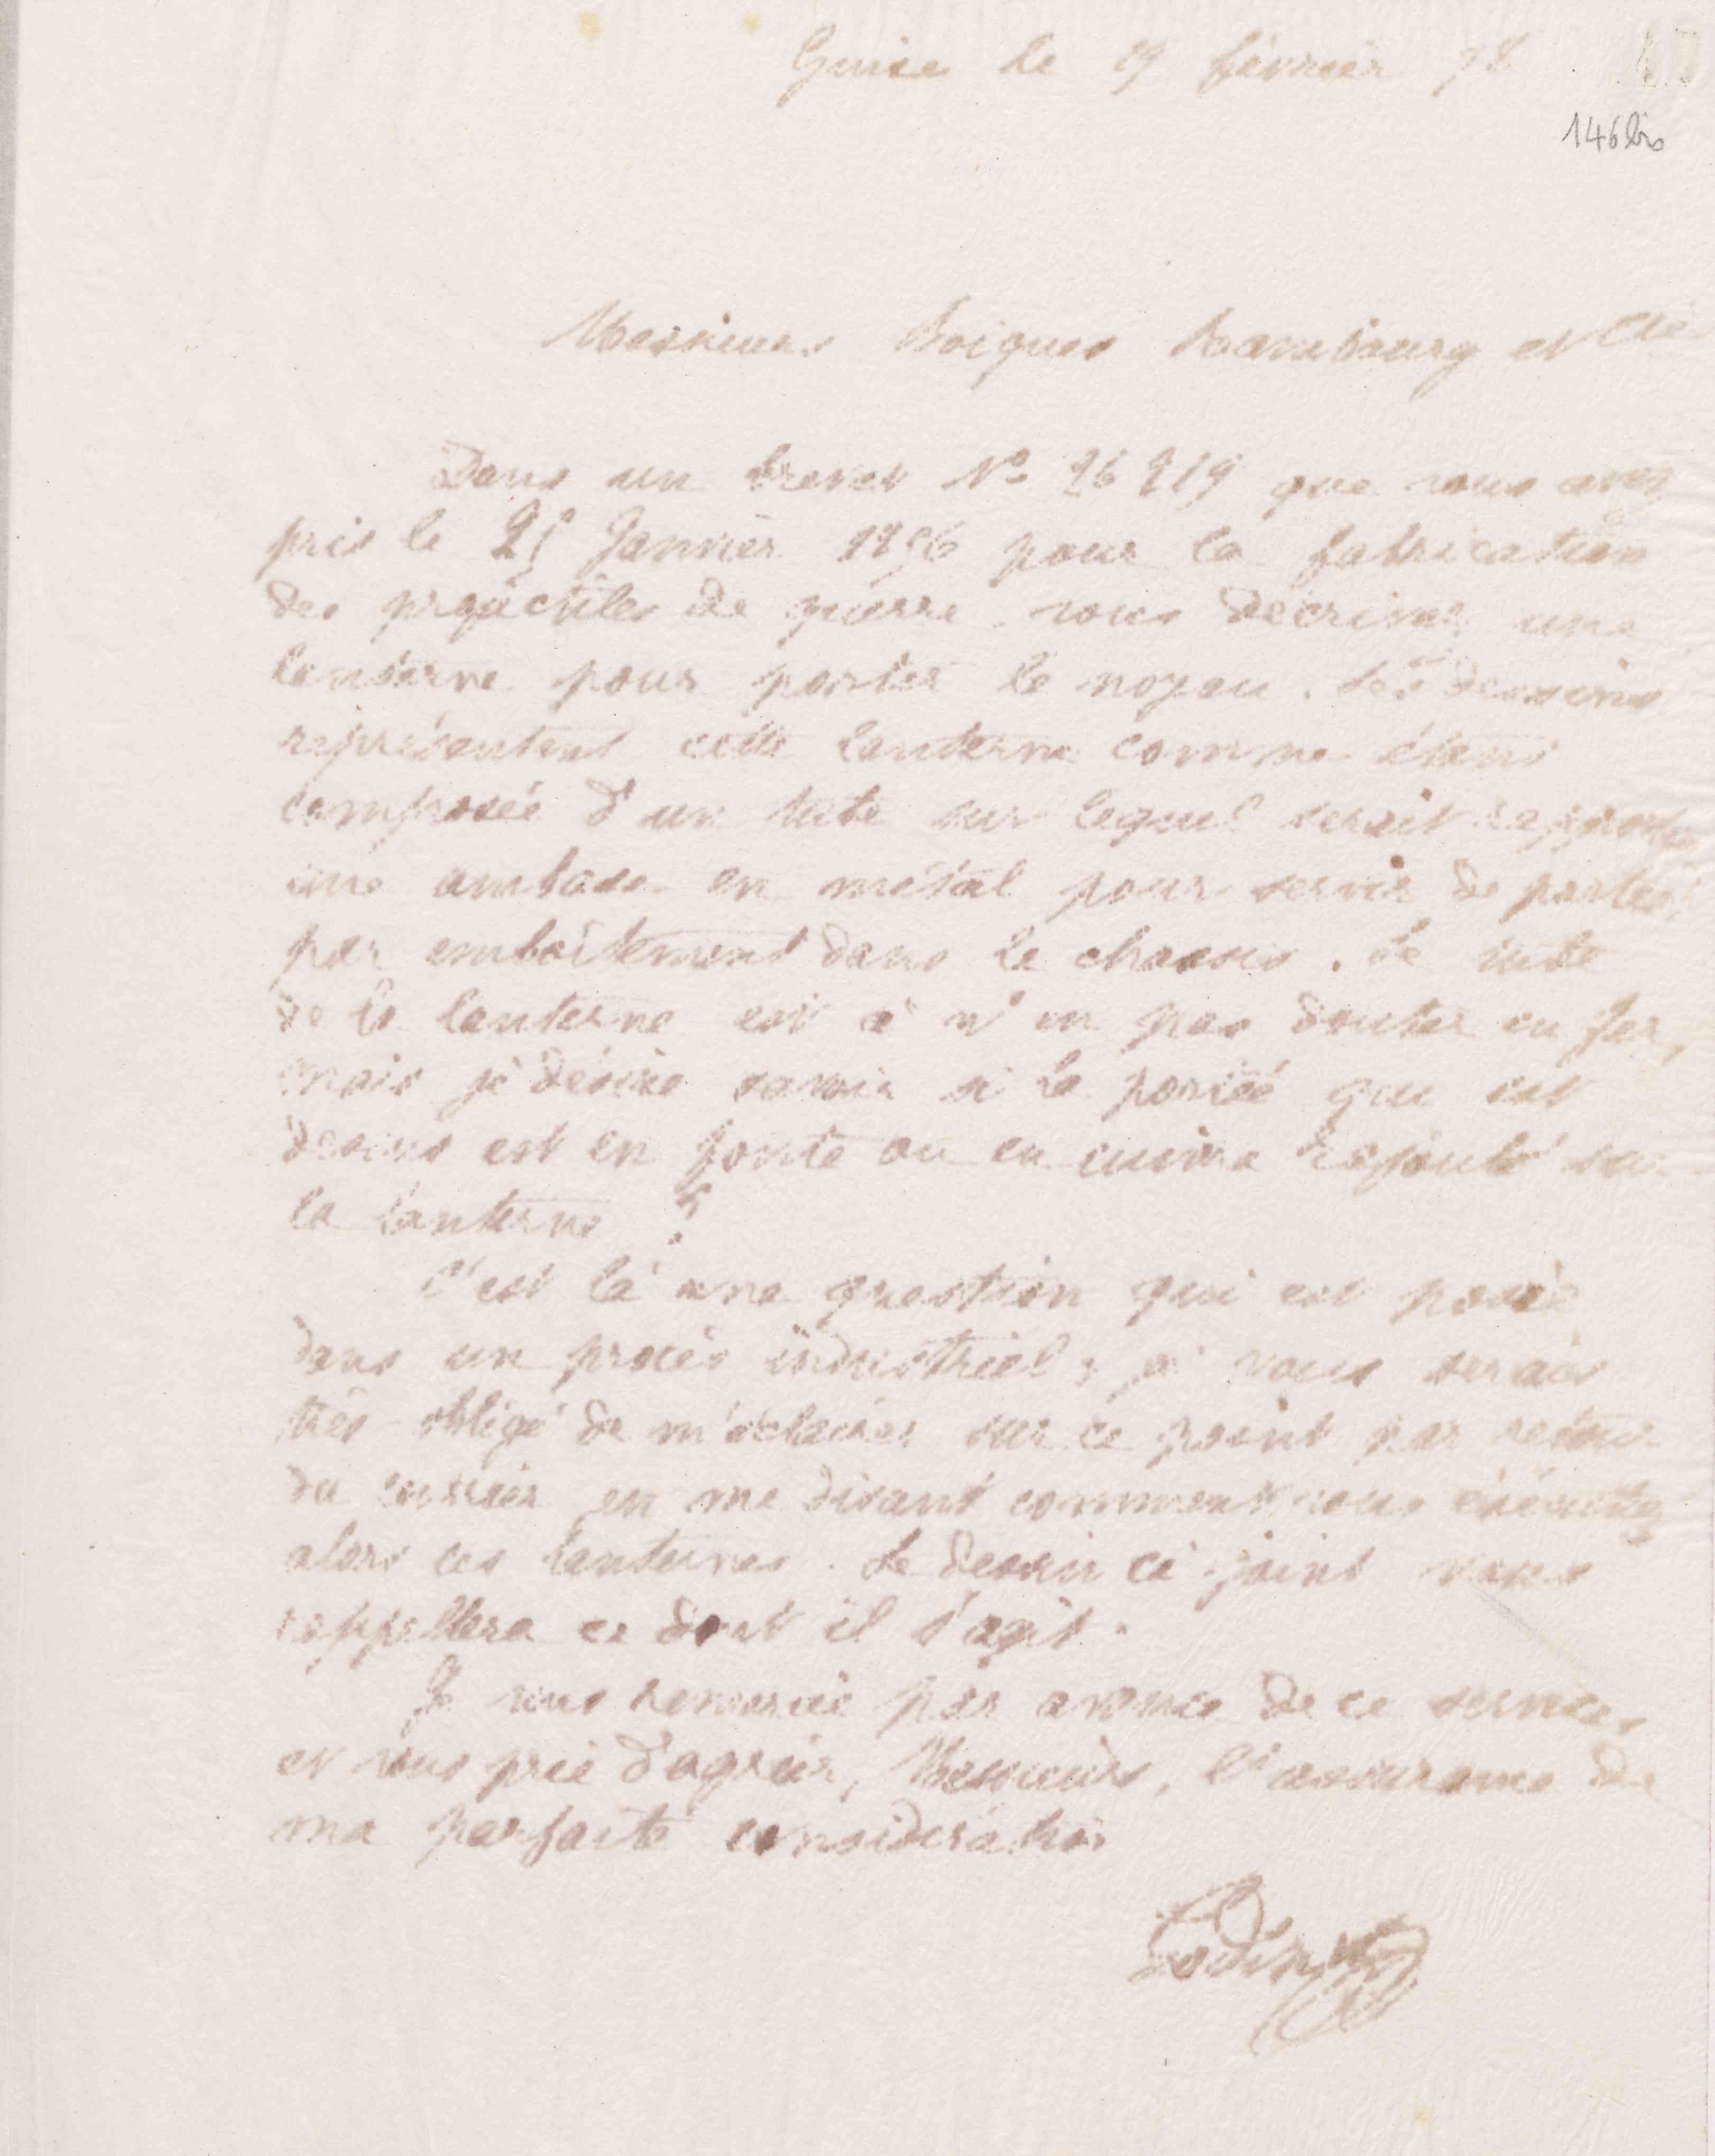 Guise le 19 février 78
146 bis
Messieurs Boigues Rambourg et Cie
Dans un brevet No 26 219 que vous avez
pris le 25 Janvier 1856 pour la fabrication
des projectiles de guerre, vous décrivez une
lanterne pour porter le noyau. Les dessins
représentent cette lanterne comme étant
composée d'un tube sur lequel serait rapportée
une embase en métal pour servir de portée
par emboitement dans le chassis. Le tube
de la lanterne est à n'en pas douter en fer,
mais je désire savoir si la portée qui est
dessus est en fonte ou en cuivre rajouté sur
la lanterne ?
C'est là une question qui est posée
dans un procès industriel ; je vous serais
très obligé de m'éclairer sur ce point par retour
du courrier en me disant comment vous exécutiez
alors ces lanternes. Le dessin ci-joint vous
rappellera ce dont il s'agit.
Je vous remercie par avance de ce service,
et vous prie d'agréer, Messieurs, l'assurance de
ma parfaite considération
Godin